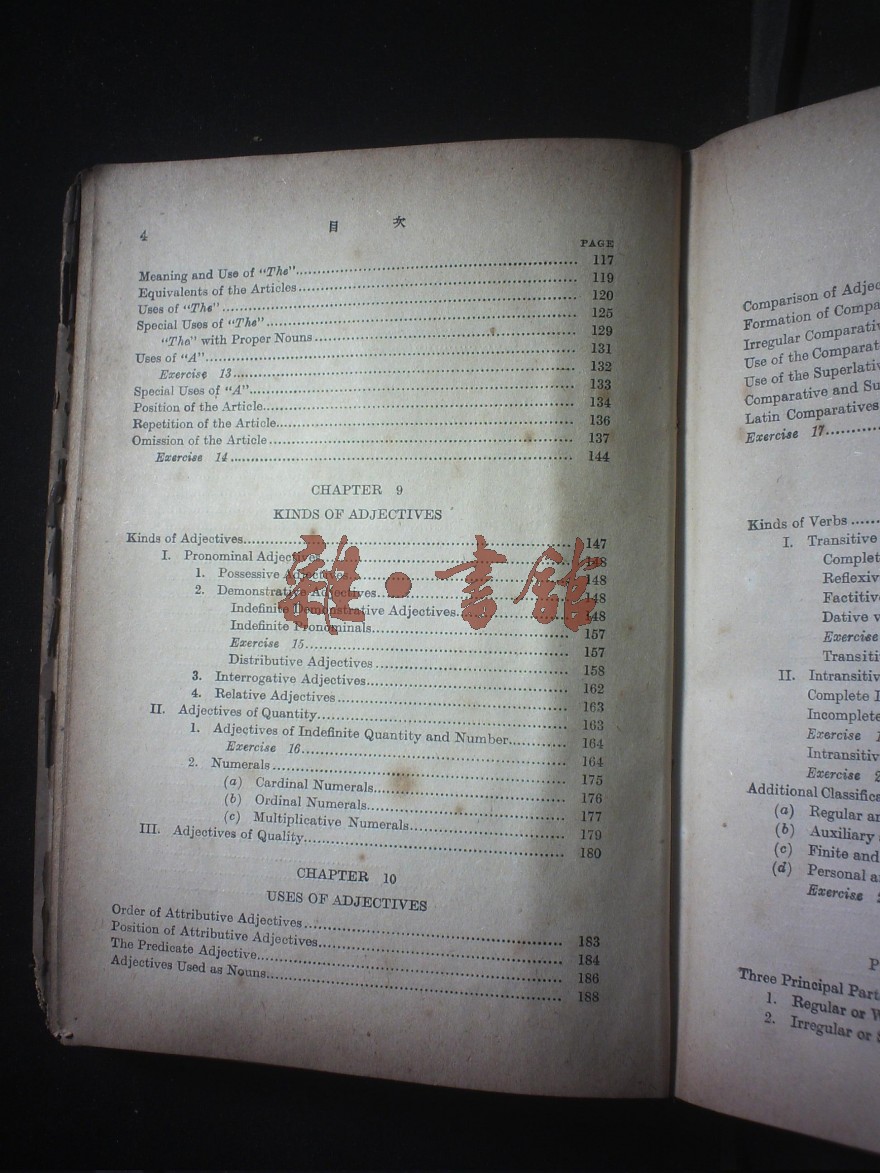 4
目 次
PAGE
Meaning and Use of "The" 117
Equivalents of the Articles 119
Uses of "The" 120
Special Uses of "The" 125
"The" with Proper Nouns 129
Uses of "A" 131
Exercise 13 132
Special Uses of "A" 133
Position of the Article 134
Repetition of the Article 136
Omission of the Article 137
Exercise 14 144
CHAPTER 9
KINDS OF ADJECTIVES
Kinds of Adjectives 147
I. Pronominal Adjectives 148
1. Possessive Adjectives 148
2. Demonstrative Adjectives 148
Indefinite Demonstrative Adjectives 148
Indefinite Pronominals 157
Exercise 15 157
Distributive Adjectives 158
3. Interrogative Adjectives 162
4. Relative Adjectives 163
II. Adjectives of Quantity 163
1. Adjectives of Indefinite Quantity and Number 164
Exercise 16 164
2. Numerals 175
(a) Cardinal Numerals 176
(b) Ordinal Numerals 177
(c) Multiplicative Numerals 179
III. Adjectives of Quality 180
CHAPTER 10
USES OF ADJECTIVES
Order of Attributive Adjectives 183
Position of Attributive Adjectives 184
The Predicate Adjective 186
Adjectives Used as Nouns 188
雜·書館
Comparison of Adjec
Formation of Compa
Irregular Comparati
Use of the Comparat
Use of the Superlati
Comparative and Su
Latin Comparatives
Exercise 17
Kinds of Verbs
I. Transitive
Complet
Reflexiv
Factitiv
Dative v
Exercise
Transiti
II. Intransitiv
Complete I
Incomplete
Exercise
Intransitiv
Exercise
Additional Classifica
(a) Regular an
(b) Auxiliary
(c) Finite and
(d) Personal a
Exercise
P
Three Principal Part
1. Regular or
2. Irregular or